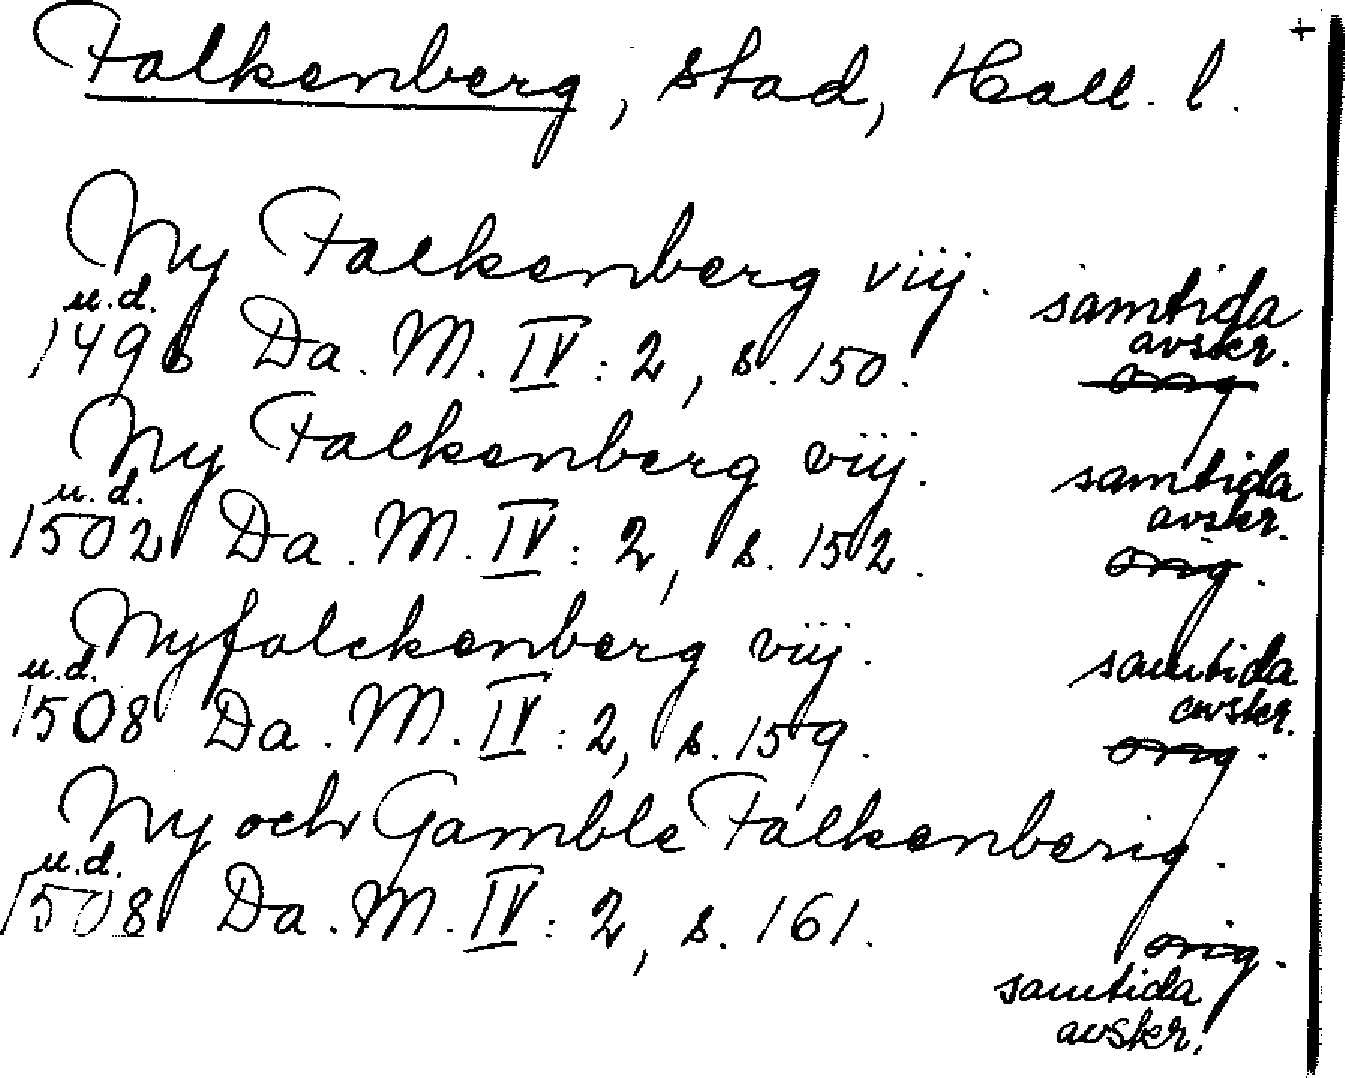 Falkenberg, stad, Hall. l. +
Ny Falkenberg viij.
u.d. samtida
1496 Da. M. IV: 2, s. 150. avskr.
orig
Ny Falkenberg viij.
u.d. samtida
1502 Da. M. IV: 2, s. 152. avskr.
orig.
Nyfalckenberg viij.
u.d. samtida
1508 Da. M. IV: 2, s. 159. avskr.
orig.
Ny och Gamble Falkenberig.
u.d.
1508 Da. M. IV: 2, s. 161.
orig.
samtida
avskr.